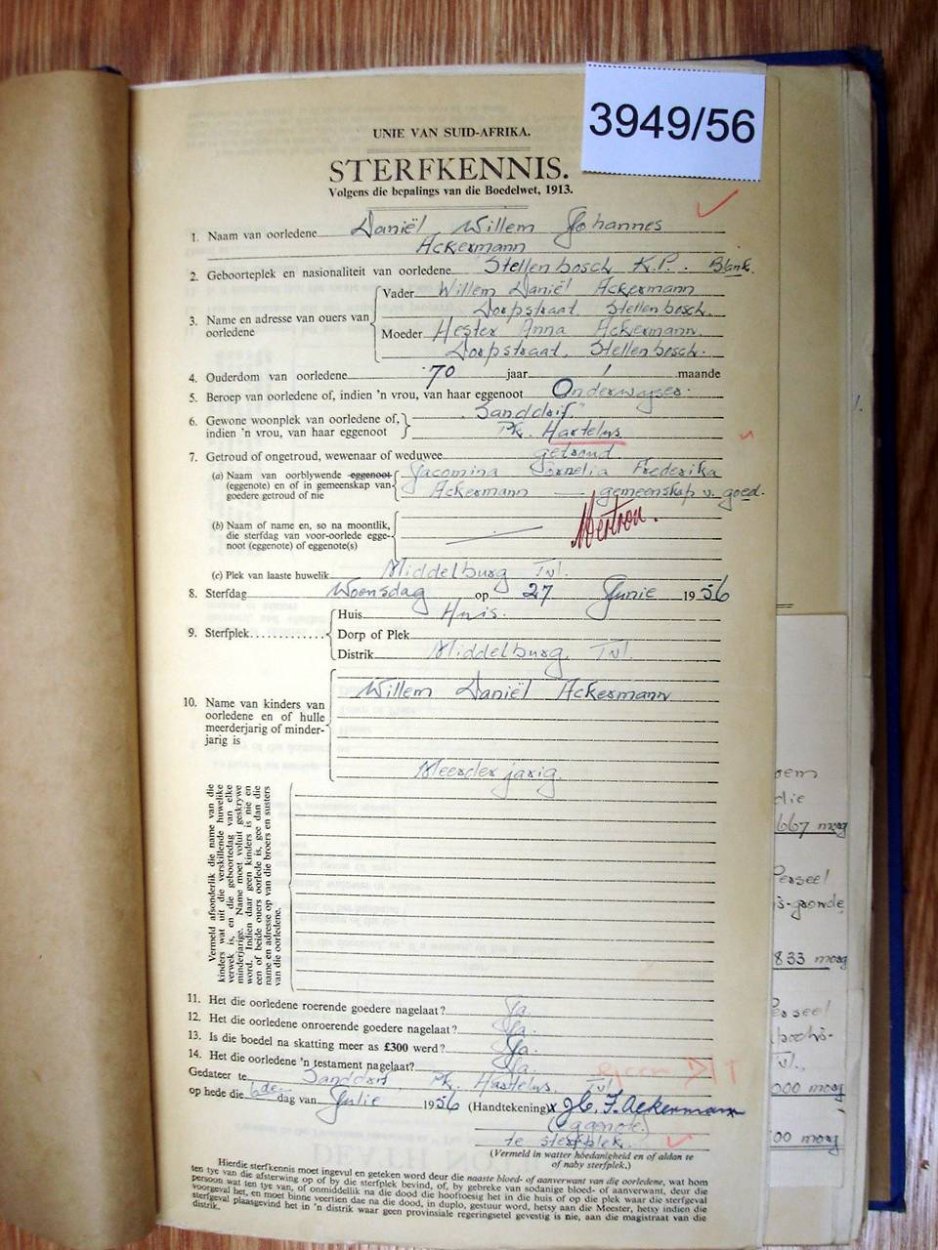 3949/56
UNIE VAN SUID-AFRIKA.
STERFKENNIS.
Volgens die bepalings van die Boedelwet, 1913.
1. Naam van oorledene Daniël Willem Johannes
Ackermann
2. Geboorteplek en nasionaliteit van oorledene Stellenbosch K.P. Blank.
3. Name en adresse van ouers van oorledene
Vader Willem Daniël Ackermann
Dorpstraat Stellenbosch.
Moeder Hester Anna Ackermann.
Dorpstraat, Stellenbosch.
4. Ouderdom van oorledene 70 jaar 1 maande
5. Beroep van oorledene of, indien 'n vrou, van haar eggenoot Onderwyser.
6. Gewone woonplek van oorledene of, indien 'n vrou, van haar eggenoot "Sanddrif."
Pk. Hartelus
7. Getroud of ongetroud, wewenaar of weduwee getroud.
(a) Naam van oorblywende eggenoot (eggenote) en of in gemeenskap van goedere getroud of nie
Jacomina Cornelia Frederika
Ackermann — gemeenskap v. goed.
(b) Naam of name en, so na moontlik, die sterfdag van voor-oorlede eggenoot (eggenote) of eggenote(s)
(c) Plek van laaste huwelik Middelburg Tvl.
8. Sterfdag Woensdag op 27 Junie 1956
9. Sterfplek
Huis Huis.
Dorp of Plek
Distrik Middelburg, Tvl.
10. Name van kinders van oorledene en of hulle meerderjarig of minderjarig is
Willem Daniël Ackermann
Meerderjarig.
Vermeld afsonderlik die name van die
kinders wat uit die verskillende huwelike
verwek is, en die geboortedag van elke
minderjarige. Name moet voluit geskrywe
word. Indien daar geen kinders is nie en
een of beide ouers oorlede is, gee dan die
name en adresse op van die broers en susters
van die oorledene.
11. Het die oorledene roerende goedere nagelaat? Ja.
12. Het die oorledene onroerende goedere nagelaat? Ja.
13. Is die boedel na skatting meer as £300 werd? Ja.
14. Het die oorledene 'n testament nagelaat? Ja
Gedateer te Sanddrif Pk. Hartelus, Tvl
op hede die 6de dag van Julie 1956 (Handtekening) x J.C.F. Ackermann
(eggenote)
te sterfplek.
(Vermeld in watter hoedanigheid en of aldan te
of naby sterfplek.)
Hierdie sterfkennis moet ingevul en geteken word deur die naaste bloed- of aanverwant van die oorledene, wat hom
ten tye van die afsterwing op of by die sterfplek bevind, of, by gebreke van sodanige bloed- of aanverwant, deur die
persoon wat ten tye van, of onmiddellik na die dood die hooftoesig het in die huis of op die plek waar die sterfgeval
voorgeval het, en moet binne veertien dae na die dood, in duplo, gestuur word, hetsy aan die Meester, hetsy indien die
sterfgeval plaasgevind het in 'n distrik waar geen provinsiale regeringsetel gevestig is nie, aan die magistraat van die
distrik.
oem
die
667 morg
Perseel
s-gronde
833 morg
Perseel
Tvl.
000 morg
00 morg